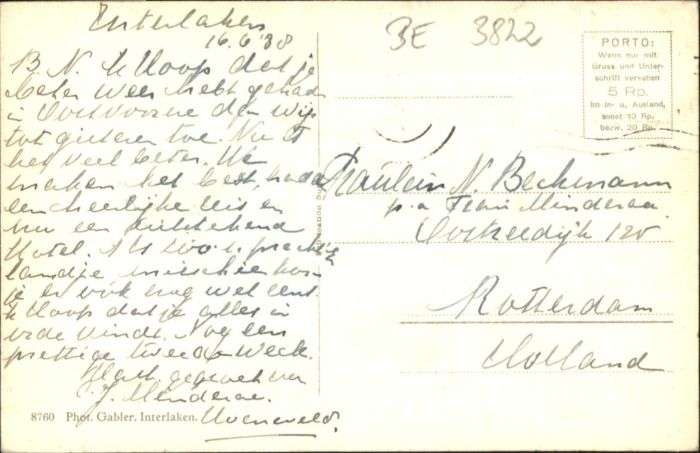 Interlaken
16.6'38
BE 3822
B N. Ik hoop dat je
beter weer hebt gehad
in Oostvoorne dan wij
tot gisteren toe. Nu is
het veel beter. We
maken het best, hadden
een heerlijke reis en
nu een uitstekend
Hotel. Als zoo'n prachtig
landje misschien kom
je er ook nog wel eens.
Ik hoop dat je alles in
orde vindt. Nog een
prettige tweede week.
Hart. gegroet van
J. Minderaa.
PORTO:
Wenn nur mit
Gruss und Unter-
schrift versehen
5 Rp.
Im In- u. Ausland,
sonst 10 Rp.
bezw. 20 Rp.
Fräulein N. Beckmann
p.a Frau Minderaa
Oostzeedijk 120
Rotterdam
Holland
8760 Phot. Gabler. Interlaken.